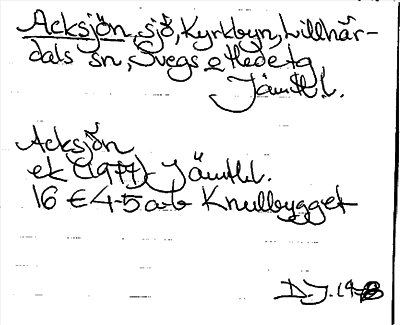 Acksjön, sjö, Kyrkbyn, Lillhär-
dals sn, Svegs o Hede tg
Jämtl.l.
Acksjön
ek (1977) Jämtl.l.
16 E 4-5 a-b Knullbygget
D.J. 19